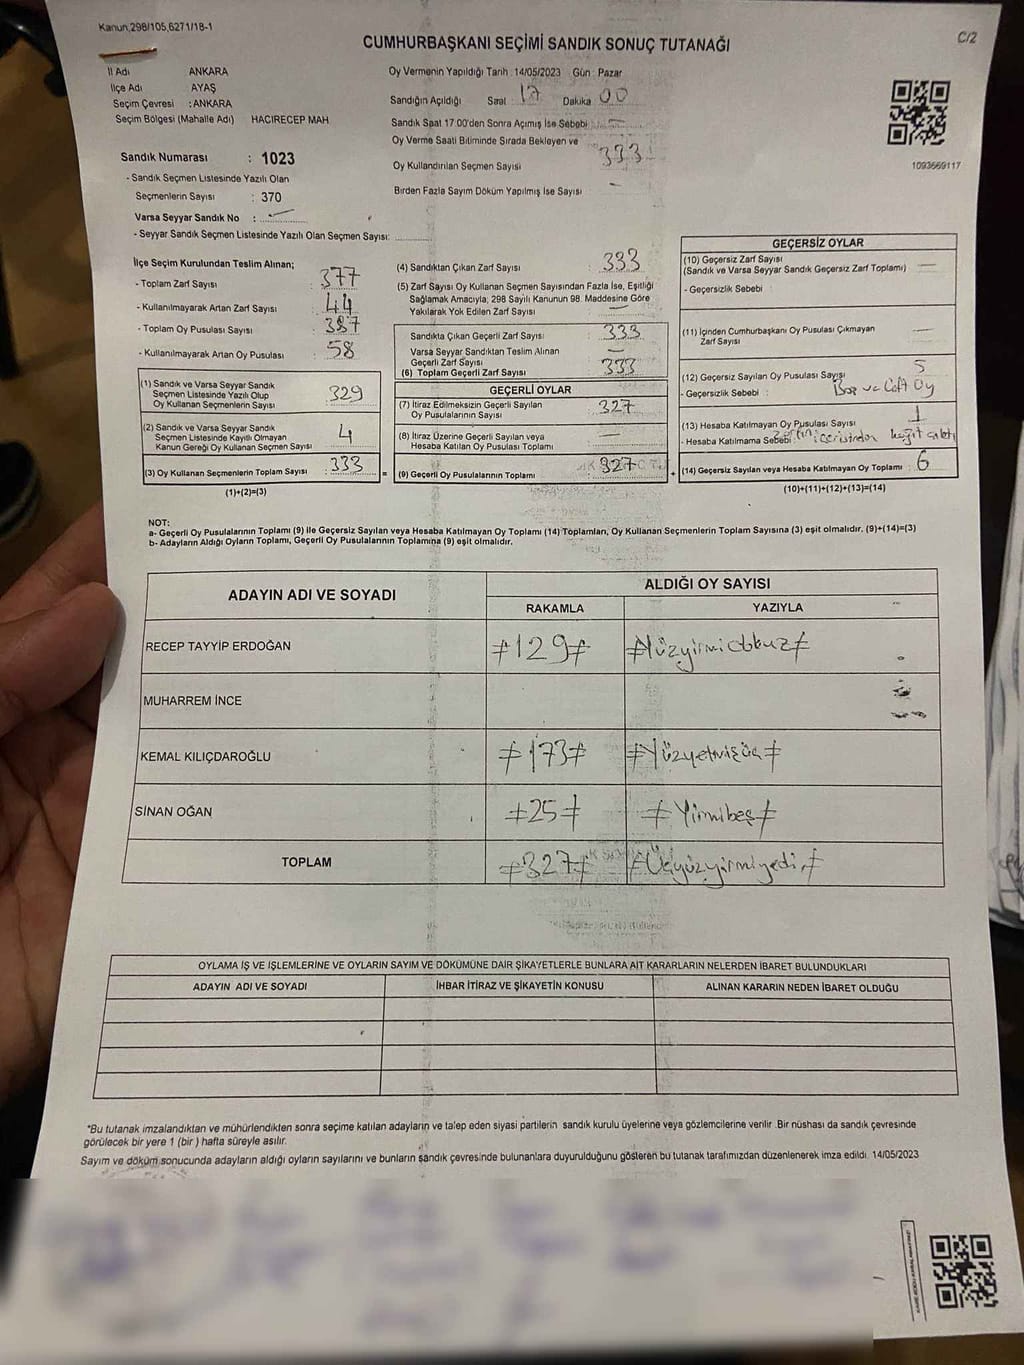 Kanun,298/105,6271/18-1
C/2
CUMHURBAŞKANI SEÇİMİ SANDIK SONUÇ TUTANAĞI
İl Adı ANKARA
İlçe Adı AYAŞ
Seçim Çevresi : ANKARA
Seçim Bölgesi (Mahalle Adı) HACIRECEP MAH.
Oy Vermenin Yapıldığı Tarih :14/05/2023 Gün : Pazar
Sandığın Açıldığı Saat 17 Dakika 00
Sandık Saat 17.00'den Sonra Açılmış İse Sebebi : —
Oy Verme Saati Bitiminde Sırada Bekleyen ve
Oy Kullandırılan Seçmen Sayısı 333
Birden Fazla Sayım Döküm Yapılmış İse Sayısı —
1093669117
Sandık Numarası : 1023
- Sandık Seçmen Listesinde Yazılı Olan
Seçmenlerin Sayısı : 370
Varsa Seyyar Sandık No : —
- Seyyar Sandık Seçmen Listesinde Yazılı Olan Seçmen Sayısı:
İlçe Seçim Kurulundan Teslim Alınan;
- Toplam Zarf Sayısı : 377
- Kullanılmayarak Artan Zarf Sayısı : 44
- Toplam Oy Pusulası Sayısı : 387
- Kullanılmayarak Artan Oy Pusulası : 58
(1) Sandık ve Varsa Seyyar Sandık
Seçmen Listesinde Yazılı Olup
Oy Kullanan Seçmenlerin Sayısı : 329
(2) Sandık ve Varsa Seyyar Sandık
Seçmen Listesinde Kayıtlı Olmayan
Kanun Gereği Oy Kullanan Seçmen Sayısı : 4
(3) Oy Kullanan Seçmenlerin Toplam Sayısı : 333
(1)+(2)=(3)
(4) Sandıktan Çıkan Zarf Sayısı : 333
(5) Zarf Sayısı Oy Kullanan Seçmen Sayısından Fazla İse, Eşitliği
Sağlamak Amacıyla, 298 Sayılı Kanunun 98. Maddesine Göre
Yakılarak Yok Edilen Zarf Sayısı : —
Sandıkta Çıkan Geçerli Zarf Sayısı : 333
Varsa Seyyar Sandıktan Teslim Alınan
Geçerli Zarf Sayısı —
(6) Toplam Geçerli Zarf Sayısı : 333
GEÇERLİ OYLAR
(7) İtiraz Edilmeksizin Geçerli Sayılan
Oy Pusulalarının Sayısı : 327
(8) İtiraz Üzerine Geçerli Sayılan veya
Hesaba Katılan Oy Pusulası Toplamı : —
(9) Geçerli Oy Pusulalarının Toplamı : 327
=
+
GEÇERSİZ OYLAR
(10) Geçersiz Zarf Sayısı
(Sandık ve Varsa Seyyar Sandık Geçersiz Zarf Toplamı) —
- Geçersizlik Sebebi :
(11) İçinden Cumhurbaşkanı Oy Pusulası Çıkmayan
Zarf Sayısı —
(12) Geçersiz Sayılan Oy Pusulası Sayısı 5
- Geçersizlik Sebebi : Boş ve Çift Oy
(13) Hesaba Katılmayan Oy Pusulası Sayısı : 1
- Hesaba Katılmama Sebebi : içerisinden kağıt çıktı
(14) Geçersiz Sayılan veya Hesaba Katılmayan Oy Toplamı : 6
(10)+(11)+(12)+(13)=(14)
NOT:
a- Geçerli Oy Pusulalarının Toplamı (9) ile Geçersiz Sayılan veya Hesaba Katılmayan Oy Toplamı (14) Toplamları, Oy Kullanan Seçmenlerin Toplam Sayısına (3) eşit olmalıdır. (9)+(14)=(3)
b- Adayların Aldığı Oyların Toplamı, Geçerli Oy Pusulalarının Toplamına (9) eşit olmalıdır.
ADAYIN ADI VE SOYADI
ALDIĞI OY SAYISI
RAKAMLA YAZIYLA
RECEP TAYYİP ERDOĞAN ≠129≠ ≠Yüzyirmidokuz≠
MUHARREM İNCE
KEMAL KILIÇDAROĞLU ≠173≠ ≠Yüzyetmişüç≠
SİNAN OĞAN ≠25≠ ≠Yirmibeş≠
TOPLAM ≠327≠ ≠Üçyüzyirmiyedi≠
OYLAMA İŞ VE İŞLEMLERİNE VE OYLARIN SAYIM VE DÖKÜMÜNE DAİR ŞİKAYETLERLE BUNLARA AİT KARARLARIN NELERDEN İBARET BULUNDUKLARI
ADAYIN ADI VE SOYADI İHBAR İTİRAZ VE ŞİKAYETİN KONUSU ALINAN KARARIN NEDEN İBARET OLDUĞU
*Bu tutanak imzalandıktan ve mühürlendikten sonra seçime katılan adayların ve talep eden siyasi partilerin sandık kurulu üyelerine veya gözlemcilerine verilir .Bir nüshası da sandık çevresinde
görülecek bir yere 1 (bir ) hafta süreyle asılır.
Sayım ve döküm sonucunda adayların aldığı oyların sayılarını ve bunların sandık çevresinde bulunanlara duyurulduğunu gösteren bu tutanak tarafımızdan düzenlenerek imza edildi. 14/05/2023